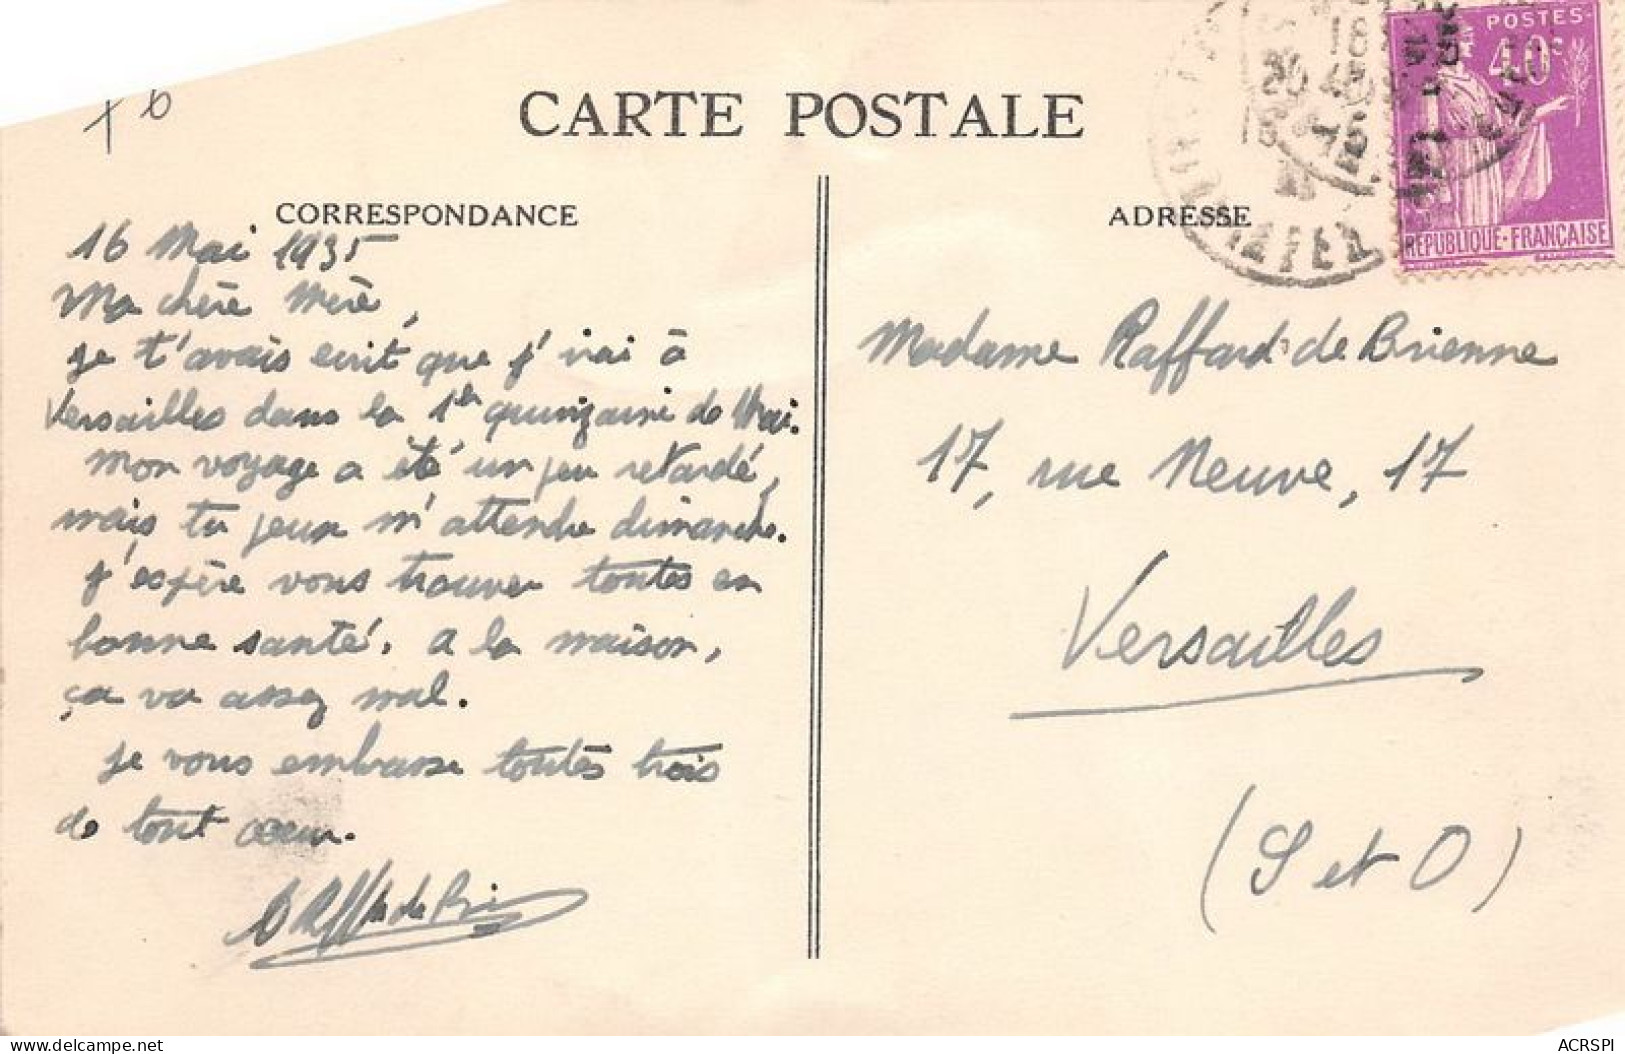 + 6
CARTE POSTALE
CORRESPONDANCE
16 Mai 1935
Ma chère Mère,
Je t'avais ecrit que j'irai à
Versailles dans la 1ère quinzaine de Mai.
Mon voyage a été un peu retardé,
mais tu peux m'attendre dimanche.
J'espère vous trouver toutes en
bonne santé. A la maison,
ça va assez mal.
Je vous embrasse toutes trois
de tout coeur.
ADRESSE
POSTES
40c
REPUBLIQUE-FRANÇAISE
Madame Raffard de Brienne
17, rue Neuve, 17
Versailles
(S et O)
delcampe.net
ACRSPI